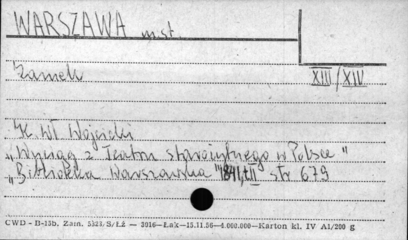 WARSZAWA m.st.
Zamek XIII/XIV
K. Wł. Wojcicki
„Wyciąg z Teatru starożytnego w Polsce"
„Biblioteka Warszawska" 1841, t. II str 679
CWD - D-15b. Zam. 5323/S/Łż — 2016—Łak—15.11.56—4.000.000—Karton kl. IV A1/200 g